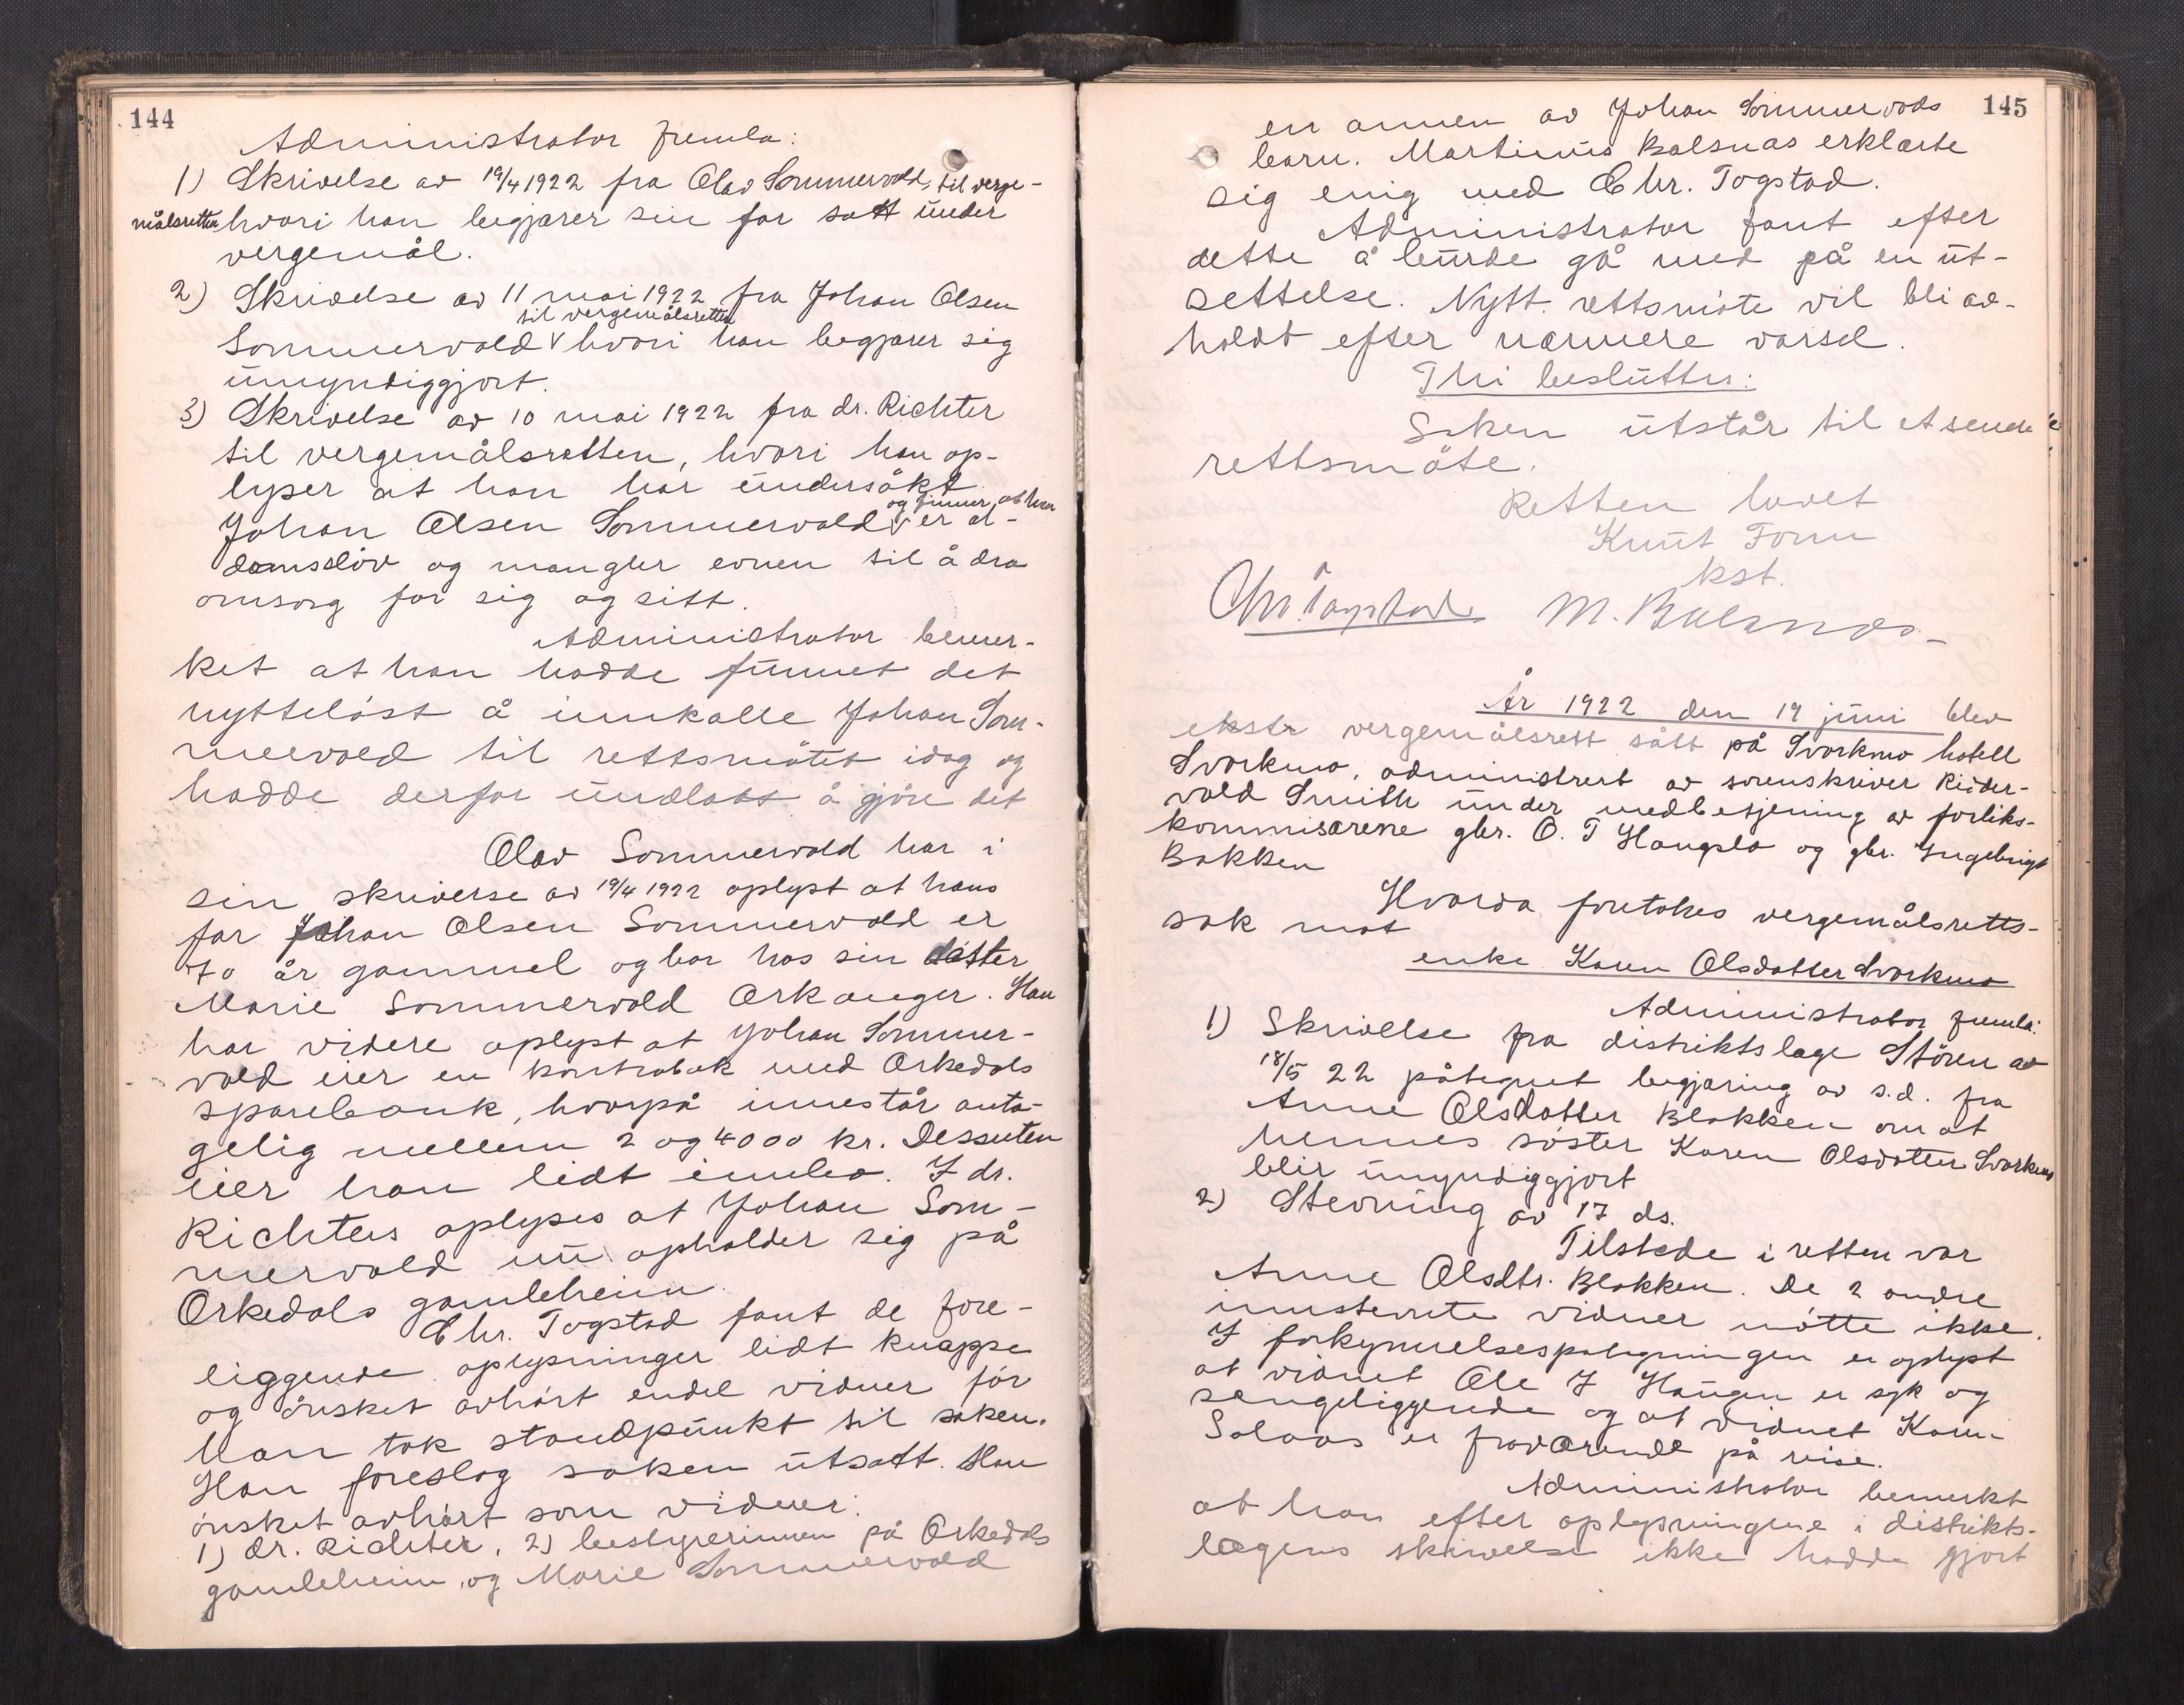 144
Administrator fremla:
1) Skrivelse av 19/4 1922 fra Olav Sommervold, til verge-
målsretten hvori han begjærer sin far satt under
vergemål.
2) Skrivelse av 11 mai 1922 fra Johan Olsen
til vergemålsretten
Sommervold v hvori han begjærer sig
umyndiggjort.
3) Skrivelse av 10 mai 1922 fra dr. Richter
til vergemålsretten, hvori han op-
lyser at han har undersökt
og finner, at han
Johan Olsen Sommervold v er al-
domsslöv og mangler evnen til å dra
omsorg for sig og sitt.
Administrator bemer-
ket at han hadde funnet det
nyttelöst å innkalle Johan Som-
mervold til rettsmötet idag og
hadde derfor undlatt å gjöre det
Olav Sommervold har i
sin skrivelse av 19/4 1922 oplyst at hans
far Johan Olsen Sommervold er
70 år gammel og bor hos sin datter
Marie Sommervold Orkanger. Han
har videre oplyst at Johan Sommer-
vold eier en kontrabok med Orkedals
sparebank, hvorpå innestår anta-
gelig mellem 2 og 4000 kr. Dessuten
eier han lidt innbo. I dr.
Richters oplyses at Johan Som-
mervold nu opholder sig på
Orkedals gamleheim.
Chr. Togstad fant de fore-
liggende oplysninger lidt knappe
og önsket avhört endel vidner för
han tok standpunkt til saken.
Han foreslog saken utsatt. Han
önsket avhört som vidner:
1) dr. Richter, 2) bestyrerinnen på Orkedals
gamleheim, og Marie Sommervold
145
en annen av Johan Sommervolds
barn. Martinus Balsnas erklærte
sig enig med Chr. Togstad.
Administrator fant efter
dette å burde gå med på en ut-
settelse. Nytt rettsmöte vil bli av-
holdt efter nærmere varsel.
Thi besluttes:
Saken utstår til et senere
rettsmöte.
Retten hevet
Knut Fonn
kst.
Chr. Togstad M. Balsnas
År 1922 den 19 juni blev
ekstr vergemålsrett satt på Svorkmo hotell
Svorkmo, administrert av sorenskriver Ridder-
vold Smith under medbetjening av forliks-
kommisærene gbr. O. T Hongslo og gbr. Ingebrigt
Bakken
Hvorda foretokes vergemålsretts-
sak mot
enke Karen Olsdatter Svorkmo
Administrator fremla:
1) Skrivelse fra distriktslæge Stören av
18/5 22 påtegnet begjæring av s.d. fra
Anne Olsdatter Blokken om at
hennes söster Karen Olsdatter Svorkmo
blir umyndiggjort
2) Stevning av 17 ds.
Tilstede i retten var
Anne Olsdtr. Blokken. De 2 andre
innstevnte vidner mötte ikke.
I forkynnelsespåtegningen er oplyst
at vidnet Ole J Haugen er syk og
sengeliggende og at vidnet Kari
Solaas er fraværende på reise.
Administrator bemerkt
at han efter oplysningene i distrikts-
lægens skrivelse ikke hadde gjort